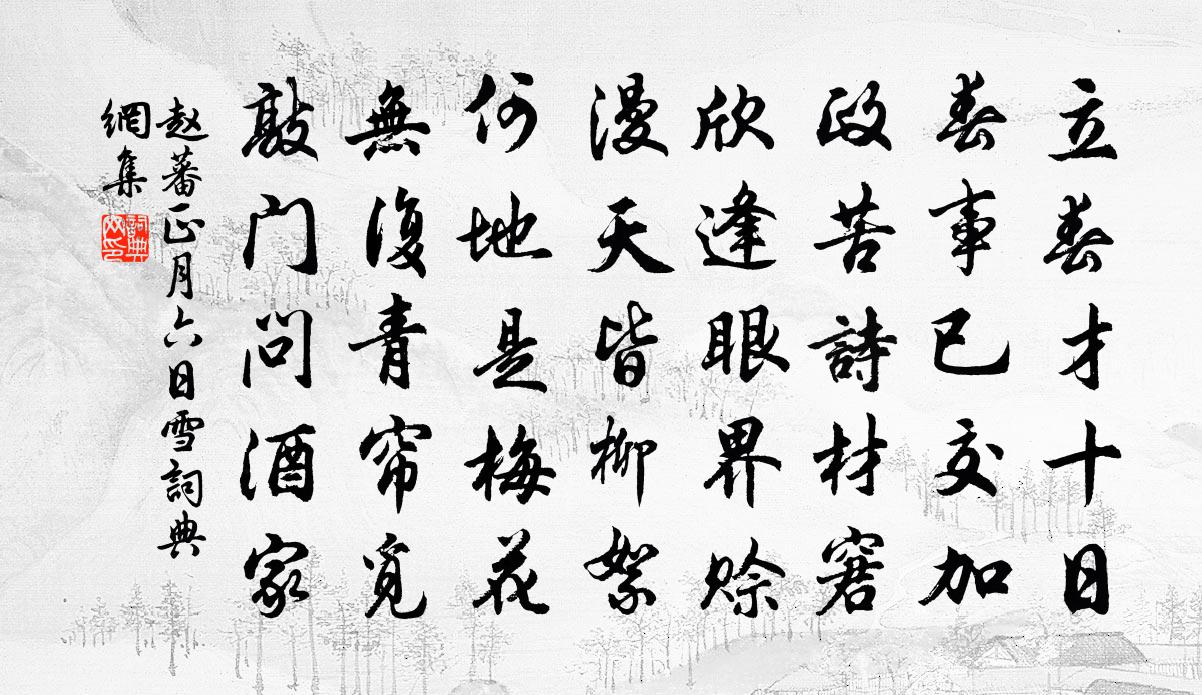 立春才十日
春事已交加
政苦詩材窘
欣逢眼界赊
漫天皆柳絮
何地是梅花
無復青帘覓
敲门问酒家
赵蕃正月六日雪詞典
網集
詞典
网印